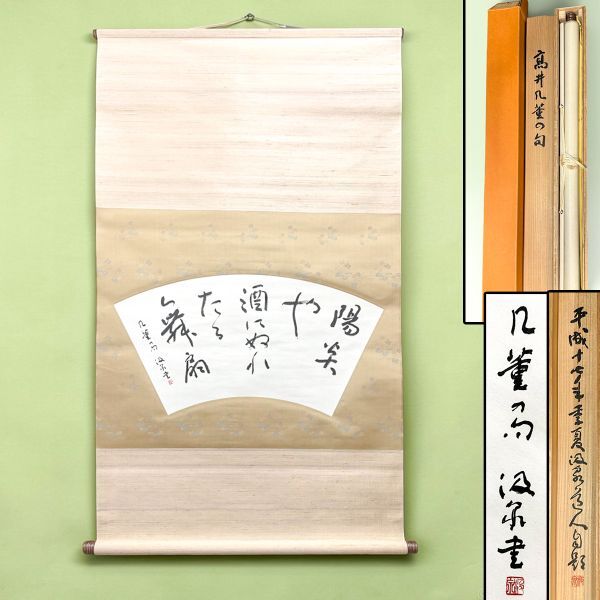 陽炎
や
酒にぬれ
たる
舞扇
几董の句 汲泉書
高井几董の句
几董の句 汲泉書
平成十七年季夏汲泉道人自題